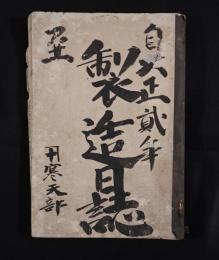 自大正貳年
製造日誌
寒天部